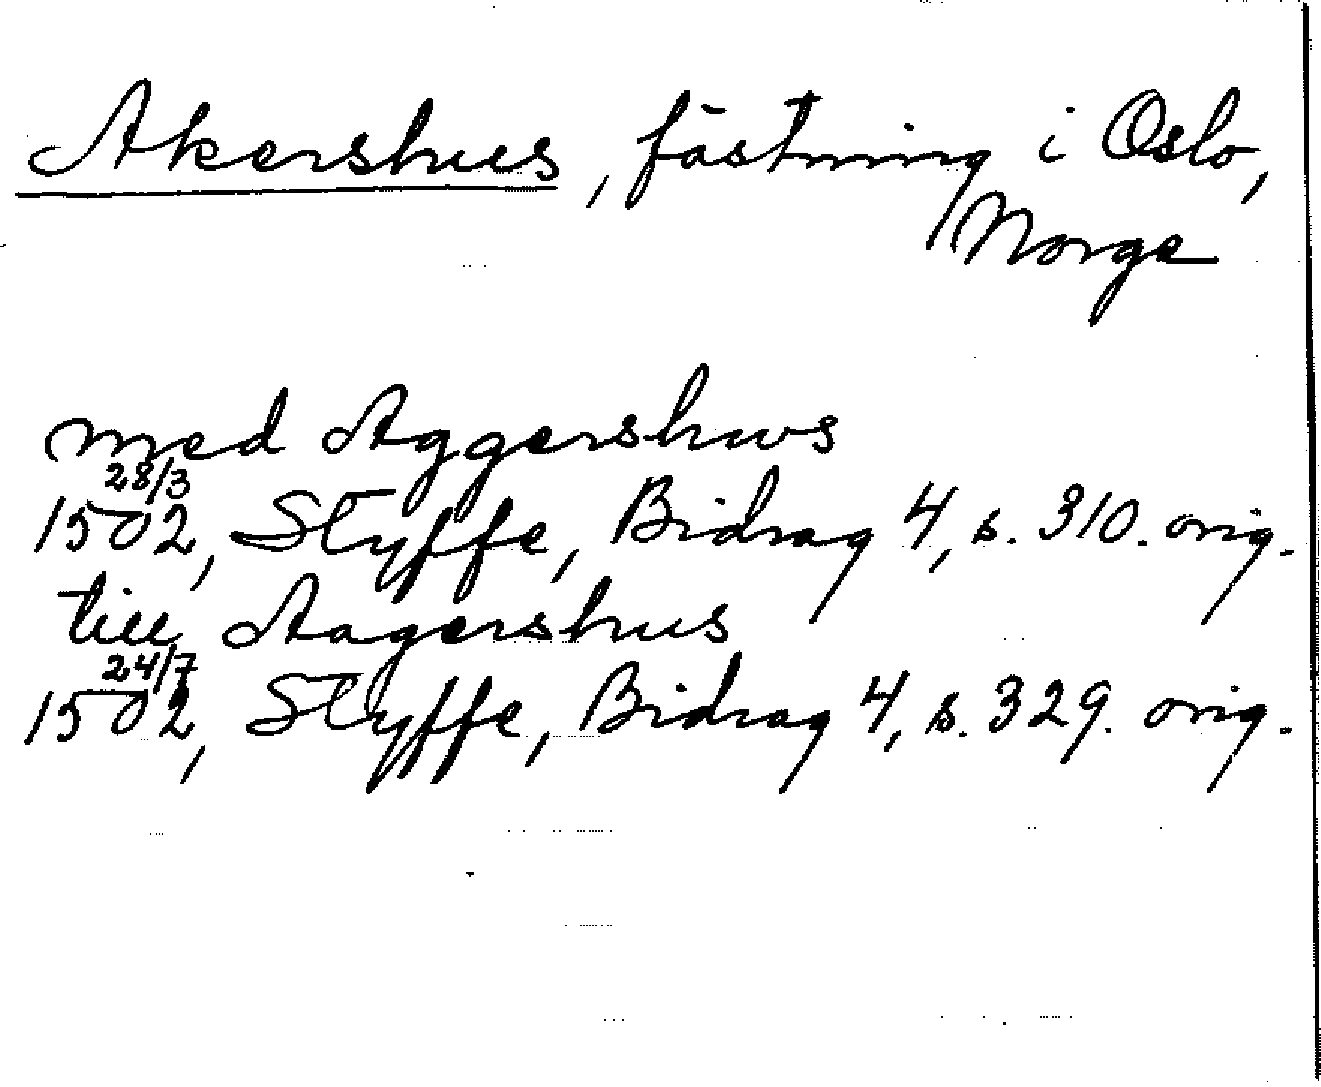 Akershus, fästning i Oslo,
Norge
med Aggershws
28/3
1502, Styffe, Bidrag 4, s. 310. orig.
till Aagershus
24/7
1502, Styffe, Bidrag 4, s. 329. orig.